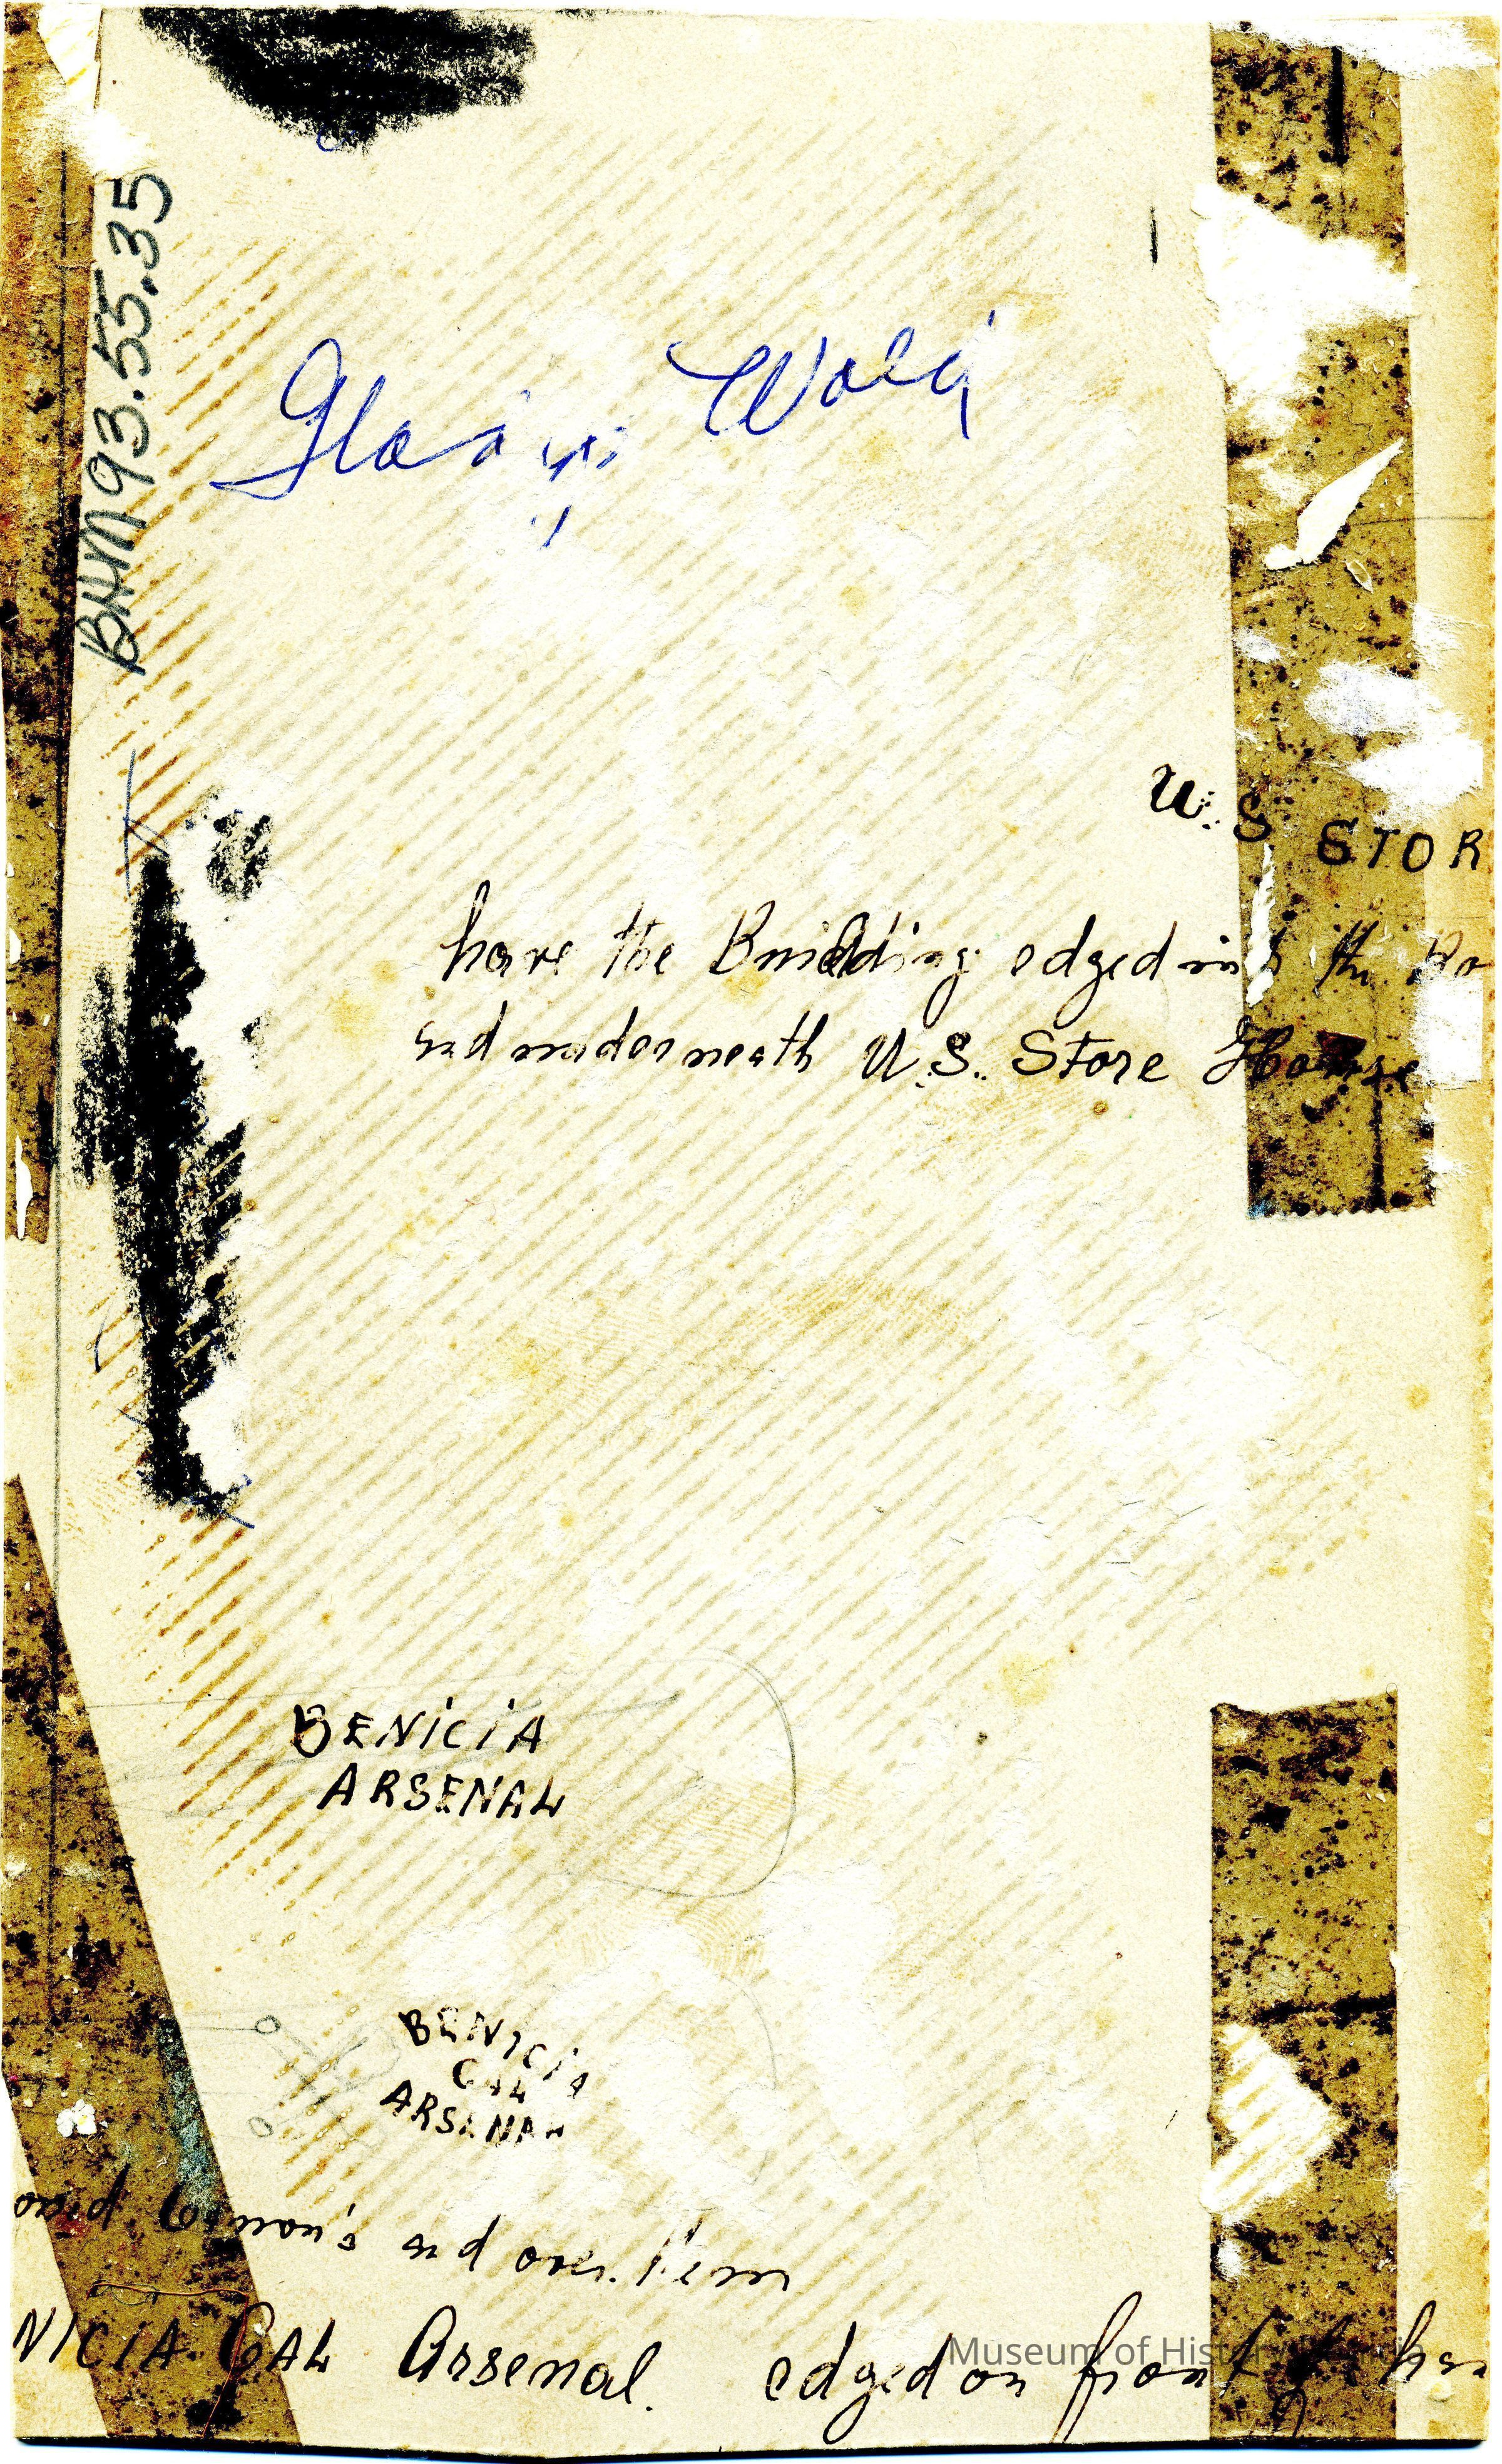 BHM 93.55.35
U.S STOR
have the Building edged in the
and underneath U.S. Store House
BENICIA
ARSENAL
BENICIA
CAL
ARSENAL
and over them
NICIA CAL Arsenal. edged on front
Museum of History Benicia